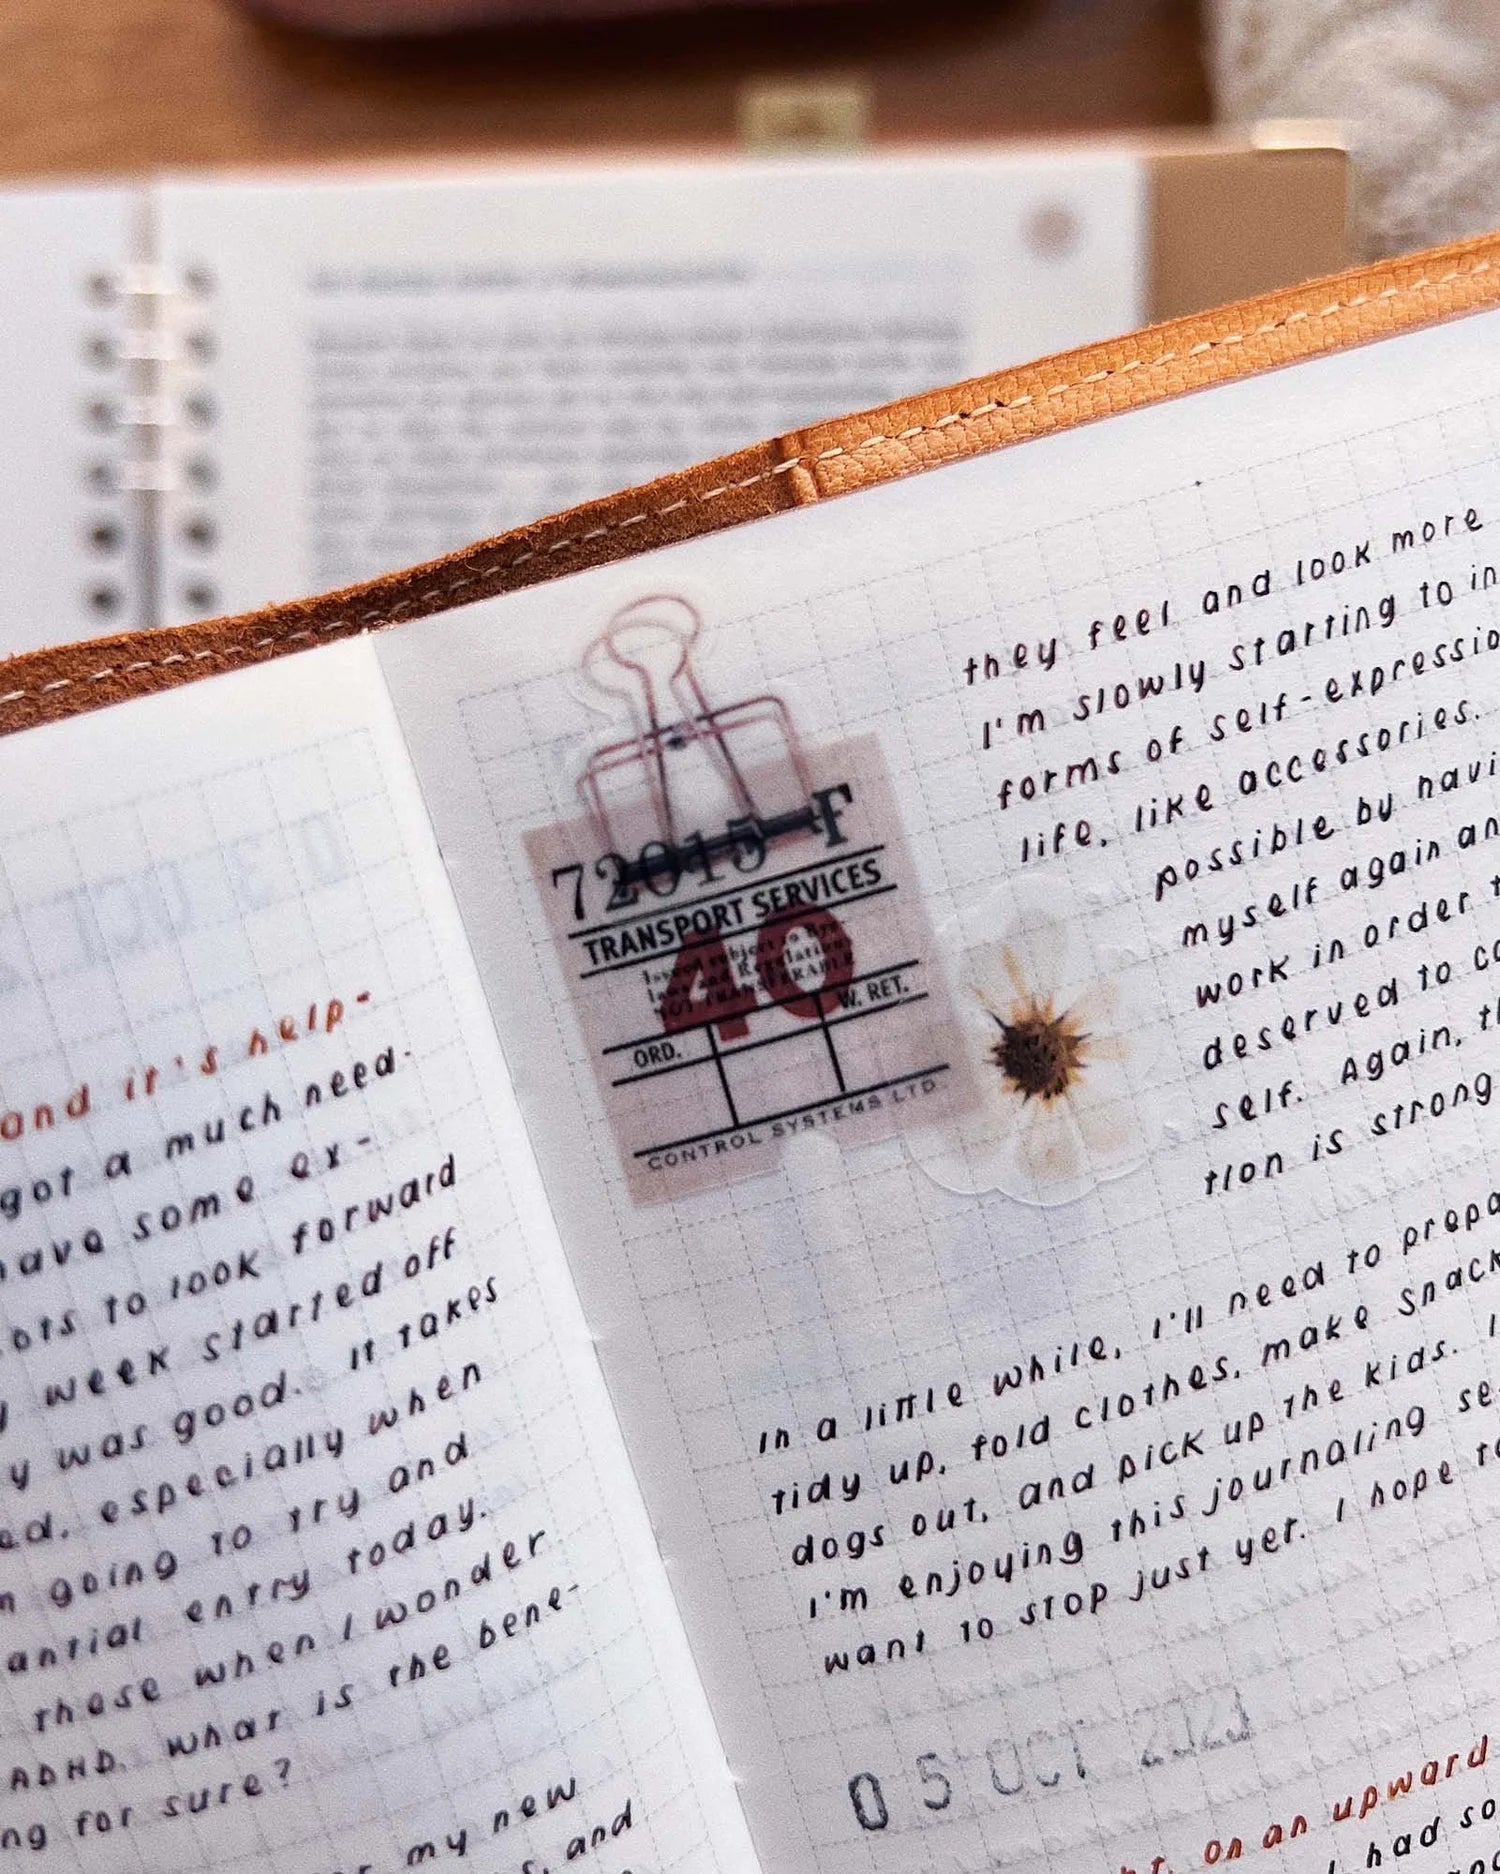 and it's help-
got a much need-
have some ex-
to look forward
week started off
y was good. It takes
especially when
going to try and
entry today.
these when I wonder
ADHD. What is the bene-
for sure?
my new
and
72015 F
TRANSPORT SERVICES
40
Issued subject to Bye
laws and Regulations
NOT TRANSFERABLE
W. RET.
ORD.
CONTROL SYSTEMS LTD.
they feel and look more
I'm slowly starting to in
forms of self-expressio
life, like accessories.
possible by havi
myself again an
work in order t
deserved to co
self. Again, th
tion is strong
In a little while, I'll need to prepa
tidy up, fold clothes, make snack
dogs out, and pick up the kids. I
I'm enjoying this journaling se
want to stop just yet. I hope to
05 OCT 2021
on an upward
I had so